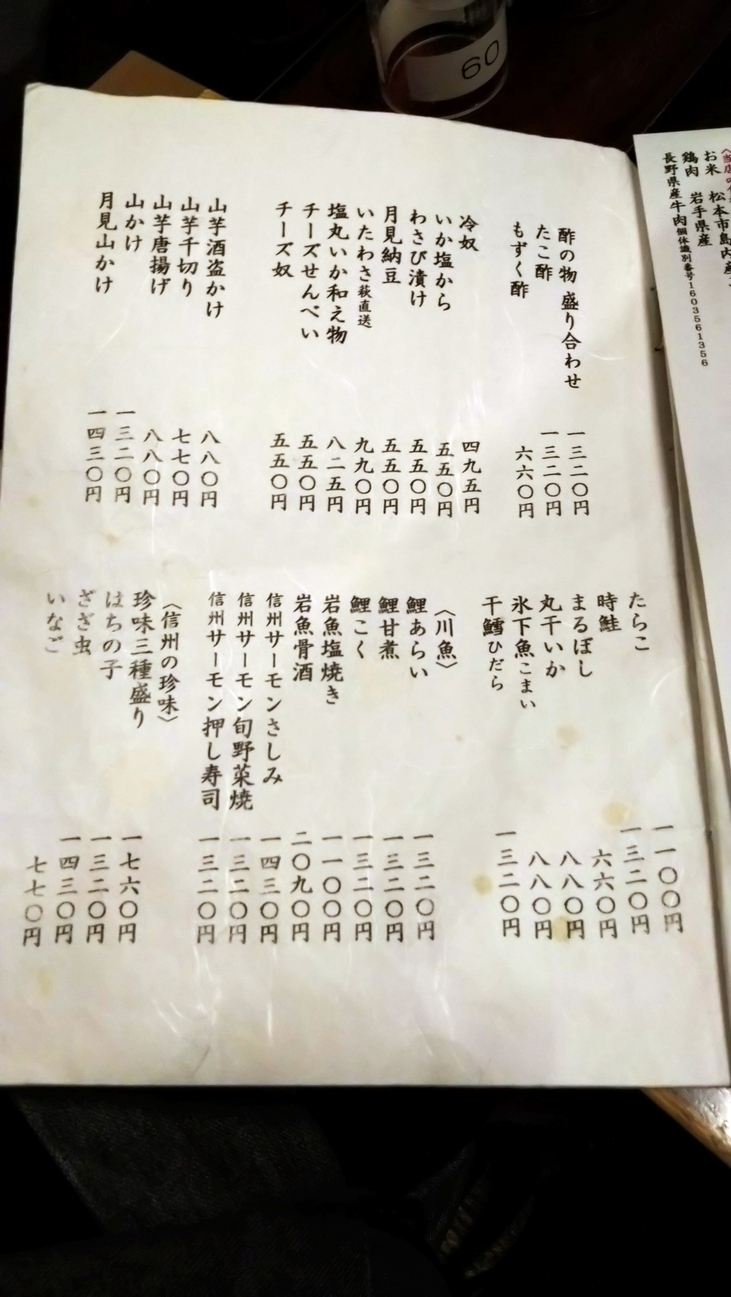 60
〈当店の
お米 松本市島内産
鶏肉 岩手県産
長野県産牛肉個体識別番号1603561356
酢の物 盛り合わせ 一三二〇円
たこ酢 一三二〇円
もずく酢 六六〇円
冷奴 四九五円
いか塩から 五五〇円
わさび漬け 五五〇円
月見納豆 五五〇円
いたわさ萩直送 九九〇円
塩丸いか和え物 八二五円
チーズせんべい 五五〇円
チーズ奴 五五〇円
山芋酒盗かけ 八八〇円
山芋千切り 七七〇円
山芋唐揚げ 八八〇円
山かけ 一三二〇円
月見山かけ 一四三〇円
たらこ 一一〇〇円
時鮭 一三二〇円
まるぼし 六六〇円
丸干いか 八八〇円
氷下魚こまい 八八〇円
干鱈ひだら 一三二〇円
〈川魚〉
鯉あらい 一三二〇円
鯉甘煮 一三二〇円
鯉こく 一三二〇円
岩魚塩焼き 一一〇〇円
岩魚骨酒 二〇九〇円
信州サーモンさしみ 一四三〇円
信州サーモン旬野菜焼 一三二〇円
信州サーモン押し寿司 一三二〇円
〈信州の珍味〉
珍味三種盛り 一七六〇円
はちの子 一三二〇円
ざざ虫 一四三〇円
いなご 七七〇円